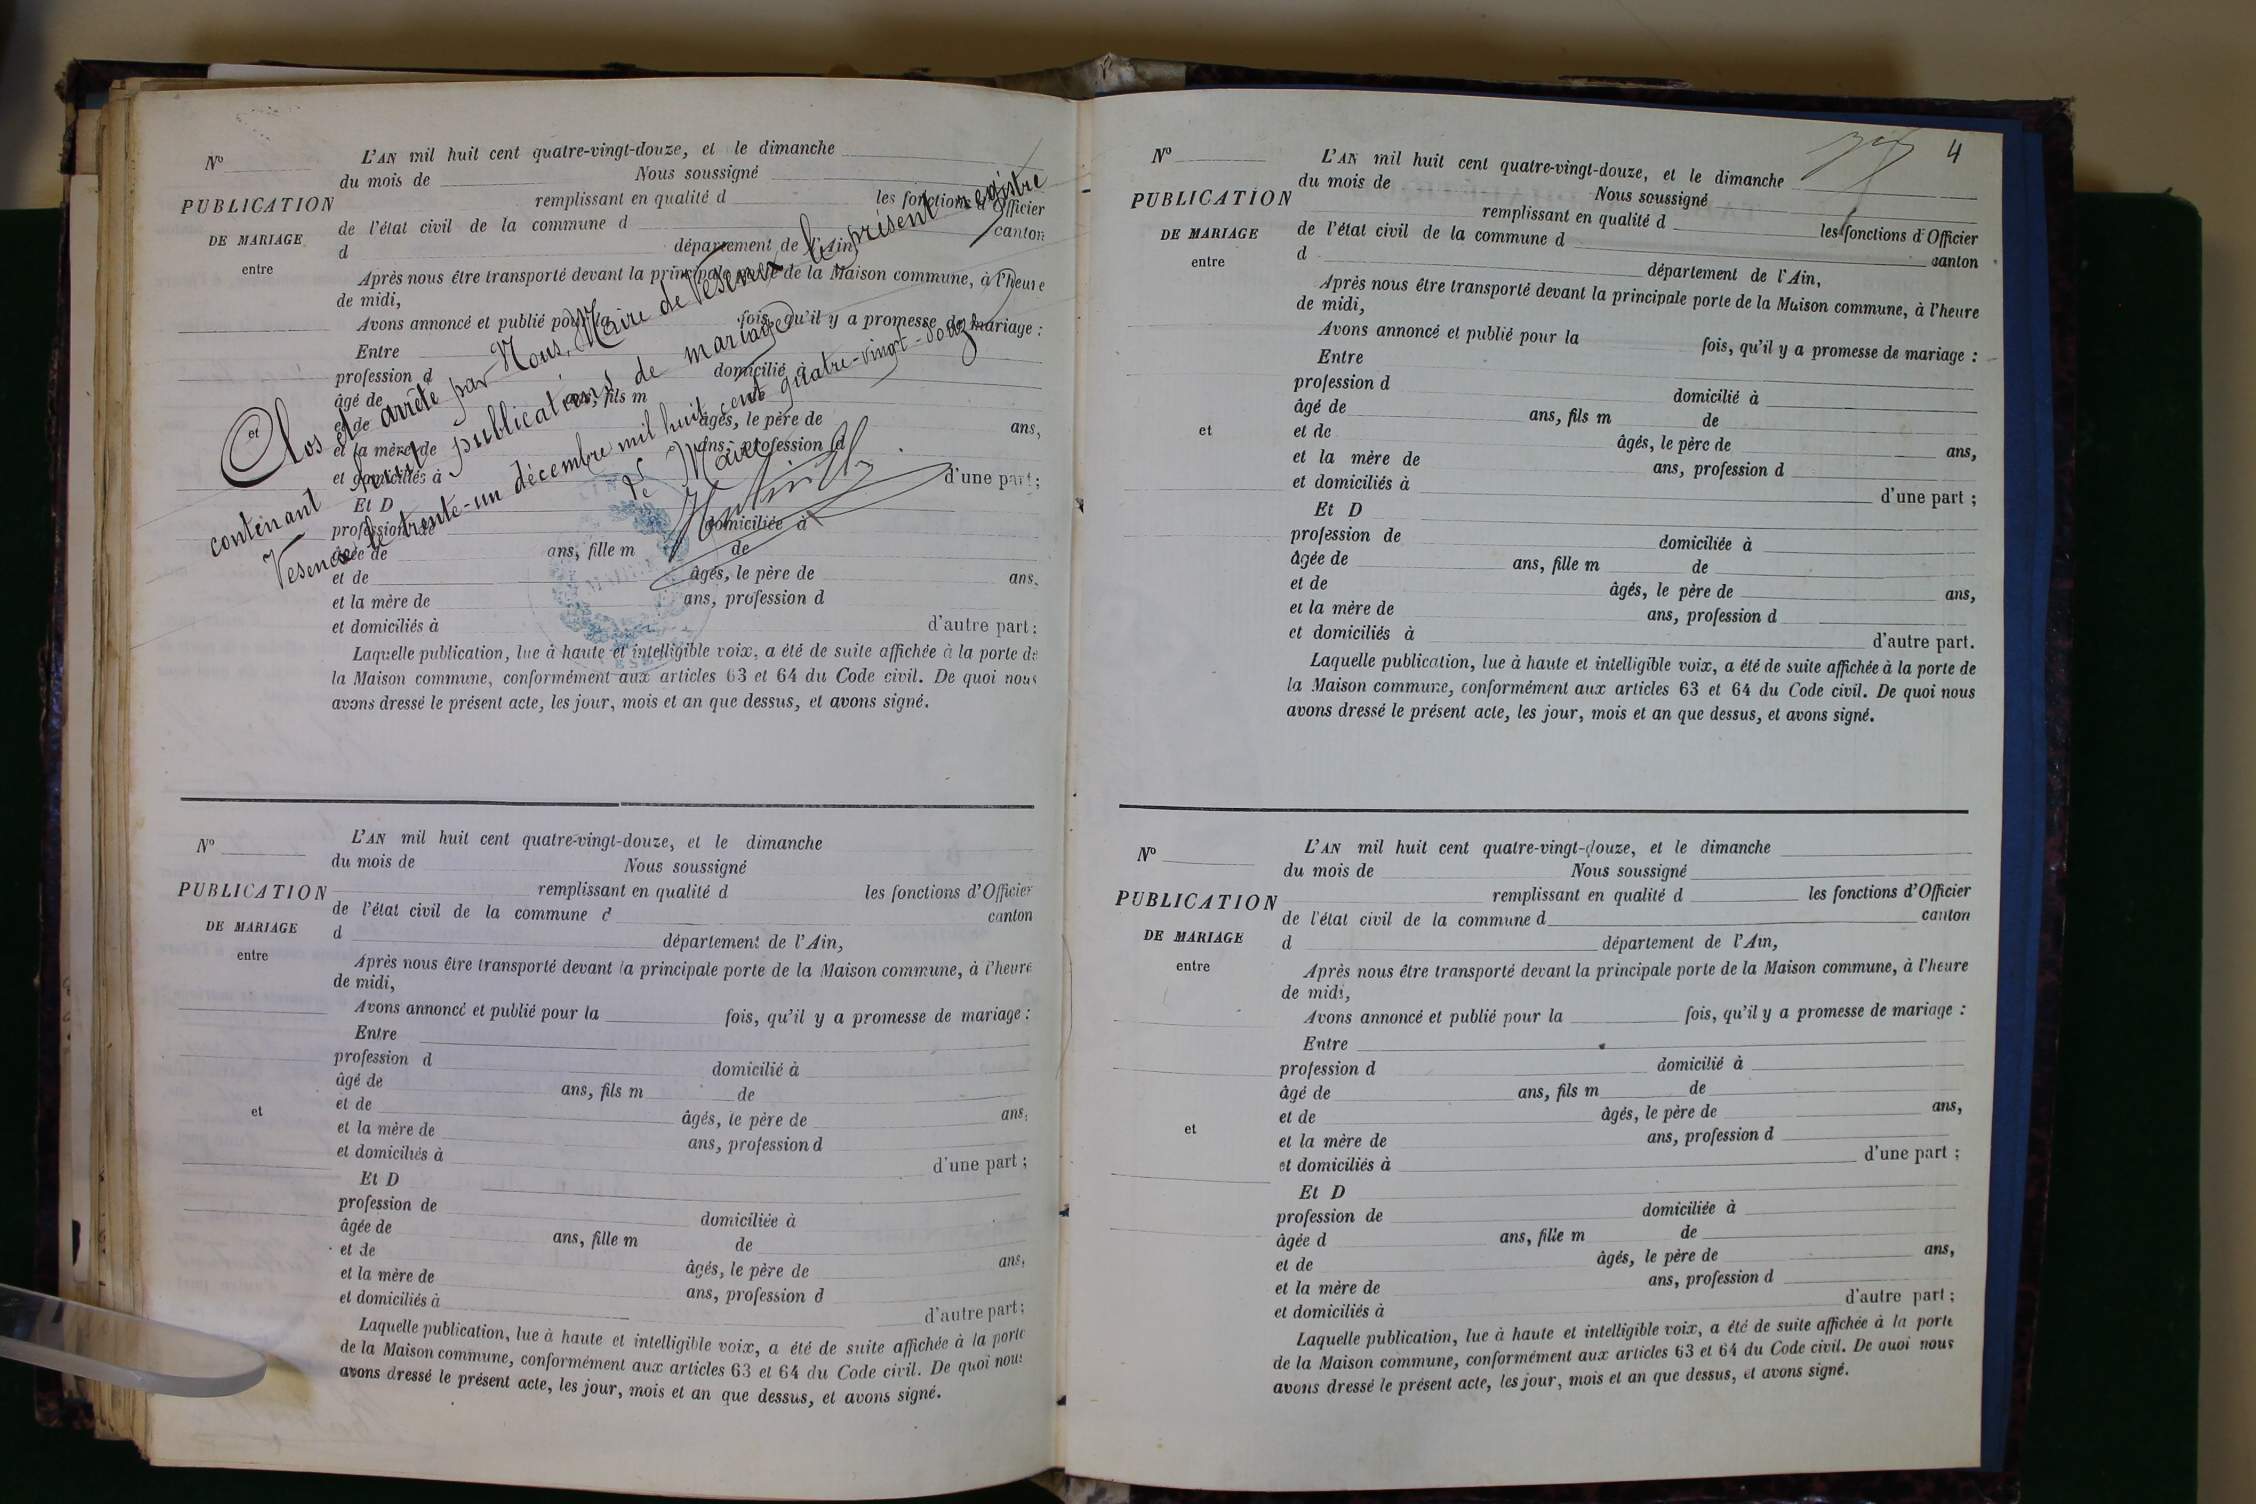 N°
PUBLICATION
DE MARIAGE
entre
et
L'AN mil huit cent quatre-vingt-douze, et le dimanche
du mois de Nous soussigné
remplissant en qualité d les fonctions d'Officier
de l'état civil de la commune d canton
d département de l'Ain
Après nous être transporté devant la principale porte de la Maison commune, à l'heure
de midi,
Avons annoncé et publié pour la fois, qu'il y a promesse de mariage :
Entre
profession d domicilié à
âgé de ans, fils m de
et de âgés, le père de ans,
et la mère de ans, profession d
et domiciliés à d'une part ;
Et D
profession de domiciliée à
âgée de ans, fille m de
et de âgés, le père de ans,
et la mère de ans, profession d
et domiciliés à d'autre part ;
Laquelle publication, lue à haute et intelligible voix, a été de suite affichée à la porte de
la Maison commune, conformément aux articles 63 et 64 du Code civil. De quoi nous
avons dressé le présent acte, les jour, mois et an que dessus, et avons signé.
Clos et arrêté par Nous, Maire de Vesenex le présent registre
contenant publications de mariage
Vesenex le trente-un décembre mil huit cent quatre-vingt-douze
Le Maire
N°
PUBLICATION
DE MARIAGE
entre
et
L'AN mil huit cent quatre-vingt-douze, et le dimanche
du mois de Nous soussigné
remplissant en qualité d les fonctions d'Officier
de l'état civil de la commune d canton
d département de l'Ain,
Après nous être transporté devant la principale porte de la Maison commune, à l'heure
de midi,
Avons annoncé et publié pour la fois, qu'il y a promesse de mariage :
Entre
profession d domicilié à
âgé de ans, fils m de
et de âgés, le père de ans,
et la mère de ans, profession d
et domiciliés à d'une part ;
Et D
profession de domiciliée à
âgée de ans, fille m de
et de âgés, le père de ans,
et la mère de ans, profession d
et domiciliés à d'autre part ;
Laquelle publication, lue à haute et intelligible voix, a été de suite affichée à la porte
de la Maison commune, conformément aux articles 63 et 64 du Code civil. De quoi nous
avons dressé le présent acte, les jour, mois et an que dessus, et avons signé.
4
N°
PUBLICATION
DE MARIAGE
entre
et
L'AN mil huit cent quatre-vingt-douze, et le dimanche
du mois de Nous soussigné
remplissant en qualité d les fonctions d'Officier
de l'état civil de la commune d canton
d département de l'Ain,
Après nous être transporté devant la principale porte de la Maison commune, à l'heure
de midi,
Avons annoncé et publié pour la fois, qu'il y a promesse de mariage :
Entre
profession d domicilié à
âgé de ans, fils m de
et de âgés, le père de ans,
et la mère de ans, profession d
et domiciliés à d'une part ;
Et D
profession de domiciliée à
âgée de ans, fille m de
et de âgés, le père de ans,
et la mère de ans, profession d
et domiciliés à d'autre part.
Laquelle publication, lue à haute et intelligible voix, a été de suite affichée à la porte de
la Maison commune, conformément aux articles 63 et 64 du Code civil. De quoi nous
avons dressé le présent acte, les jour, mois et an que dessus, et avons signé.
N°
PUBLICATION
DE MARIAGE
entre
et
L'AN mil huit cent quatre-vingt-douze, et le dimanche
du mois de Nous soussigné
remplissant en qualité d les fonctions d'Officier
de l'état civil de la commune d canton
d département de l'Ain,
Après nous être transporté devant la principale porte de la Maison commune, à l'heure
de midi,
Avons annoncé et publié pour la fois, qu'il y a promesse de mariage :
Entre
profession d domicilié à
âgé de ans, fils m de
et de âgés, le père de ans,
et la mère de ans, profession d
et domiciliés à d'une part ;
Et D
profession de domiciliée à
âgée d ans, fille m de
et de âgés, le père de ans,
et la mère de ans, profession d
et domiciliés à d'autre part ;
Laquelle publication, lue à haute et intelligible voix, a été de suite affichée à la porte
de la Maison commune, conformément aux articles 63 et 64 du Code civil. De quoi nous
avons dressé le présent acte, les jour, mois et an que dessus, et avons signé.